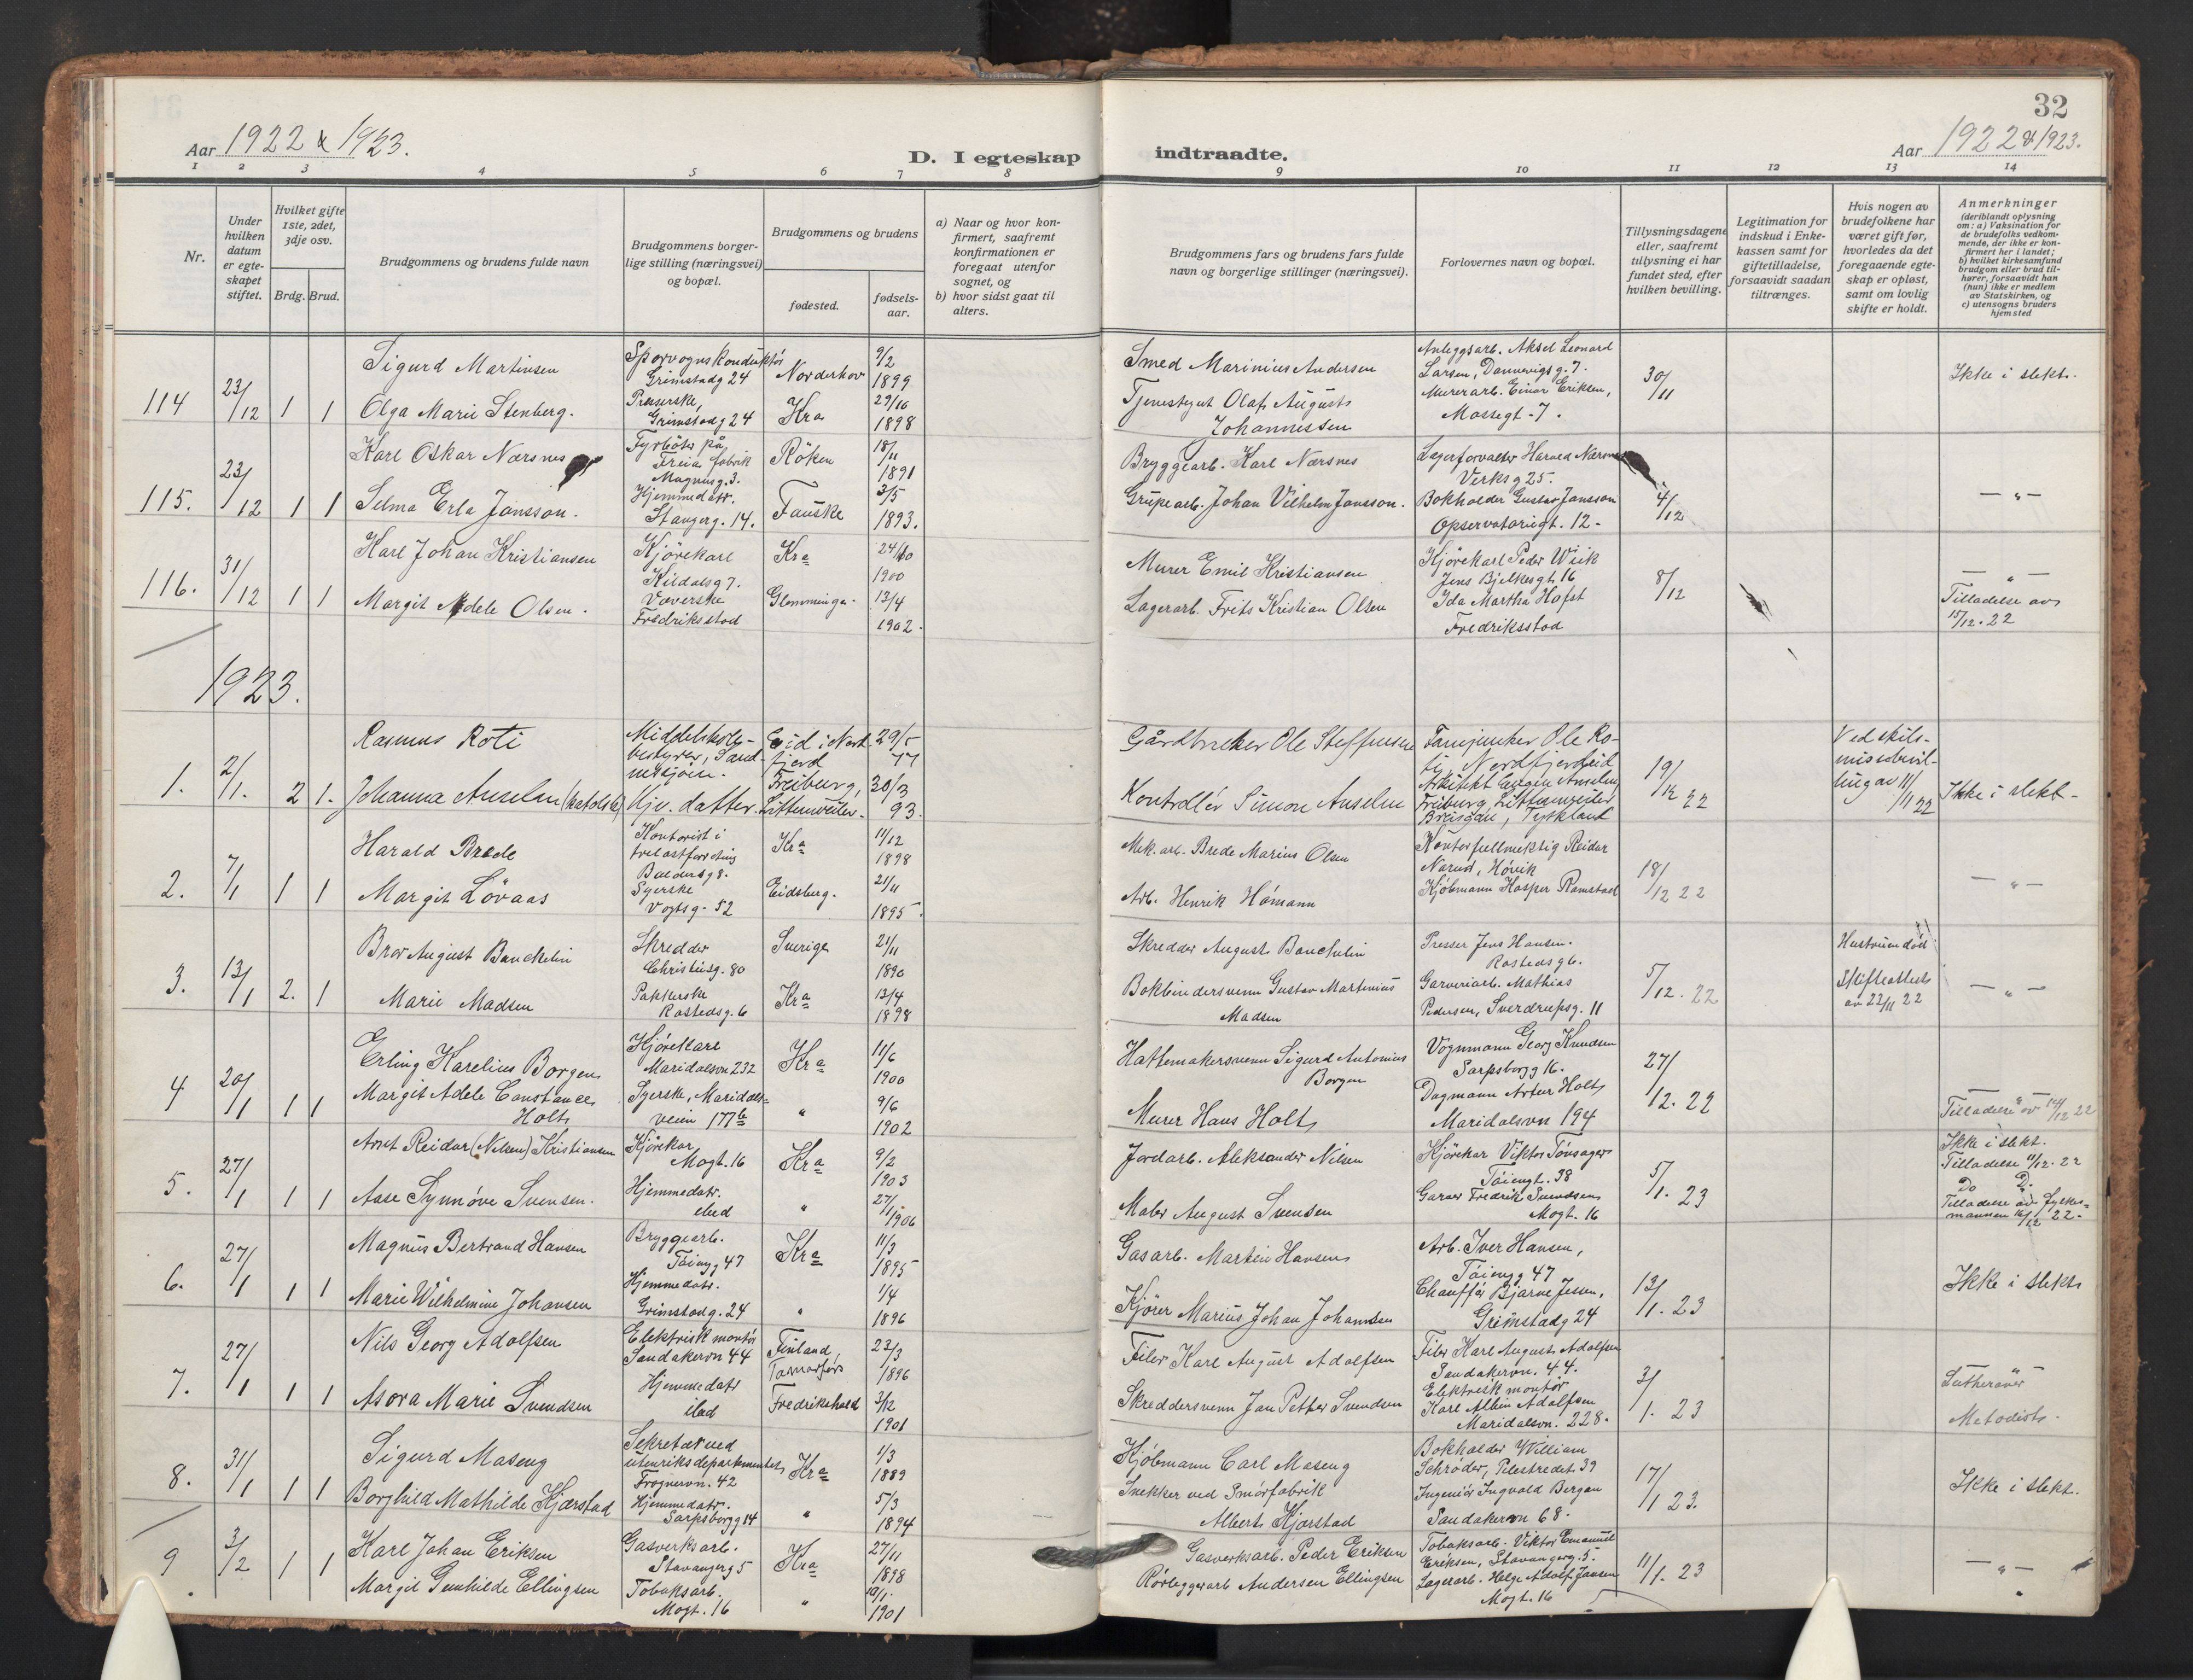 32
Aar 1922 & 1923.
D. I egteskap
indtraadte.
Aar 1922 & 1923.
1 2 3 4 5 6 7 8 9 10 11 12 13 14
Nr.
Under hvilken datum er egteskapet stiftet.
Hvilket gifte 1ste, 2det, 3dje osv.
Brdg. Brud.
Brudgommens og brudens fulde navn
Brudgommens borgerlige stilling (næringsvei) og bopæl.
Brudgommens og brudens
fødested.
fødselsaar.
a) Naar og hvor konfirmert, saafremt konfirmationen er foregaat utenfor sognet, og
b) hvor sidst gaat til alters.
Brudgommens fars og brudens fars fulde navn og borgerlige stillinger (næringsvei).
Forlovernes navn og bopæl.
Tillysningsdagene eller, saafremt tillysning ei har fundet sted, efter hvilken bevilling.
Legitimation for indskud i Enkekassen samt for giftetilladelse, forsaavidt saadan tiltrænges.
Hvis nogen av brudefolkene har været gift før, hvorledes da det foregaaende egteskap er opløst, samt om lovlig skifte er holdt.
Anmerkninger
(deriblandt oplysning om: a) Vaksination for de brudefolks vedkommende, der ikke er konfirmert her i landet; b) hvilket kirkesamfund brudgom eller brud tilhører, forsaavidt han (hun) ikke er medlem av Statskirken, og c) utensogns bruders hjemsted
114 23/12 1 1
Sigurd Martinsen
Sporvognskonduktör
Grimstadg 24
Norderhov
9/2 1899
Smed Marinius Andersen
Anleggsarb. Aksel Leonard
Larsen, Dannevigsg. 7.
30/11
Ikke i slekt.
Olga Marie Stenberg.
Presserske,
Grimstadg 24
Kra
29/10 1898
Tjenestegut Olaf August
Johannessen
Murerarb. Einar Eriksen,
Mossegt. 7.
115. 23/12 1 1
Karl Oskar Nærsnes
Fyrböter på
Freia fabrik
Magnusg. 3.
Röken
18/11 1891
Bryggearb. Karl Nærsnes
Lagerforvalter Harald Nærsnes
Verksg 25.
4/12
— " —
Selma Erla Jansson.
Hjemmedatr.
Stangerg. 14.
Fauske
3/5 1893.
Grupearb. Johan Vilhelm Jansson.
Bokholder Gustav Jansson
Opservatoriegt. 12 -
116. 31/12 1 1
Karl Johan Kristiansen
Kjörekarl
Kildalsg 7.
Kra
24/10 1900
Murer Emil Kristiansen
Kjörekarl Peder Wiik
Jens Bjelkesgt. 16
8/12
— " —
Margit Adele Olsen.
Væverske
Fredriksstad
Glemminge.
13/4 1902.
Lagerarb. Frits Kristian Olsen
Ida Martha Hofst
Fredriksstad
Tilladelse av
15/12. 22
1923.
1. 2/1. 2 1.
Rasmus Roti
Middelskole-
bestyrer, Sand-
nessjöen.
Eid i Nord-
fjord
29/5 77
Gårdbruker Ole Steffensen
Fanejunker Ole Ro-
ti, Nordfjordeid
19/12 22
Ved skils-
missebevil-
ling av 11/1 22
Ikke i slekt -
Johanna Anselm (katolsk)
Hjv. datter.
Freiburg,
Littenweiler.
20/3 93.
Kontrollör Simon Anselm
Arkitekt Eugen Anselm,
Freiburg, Littenweiler,
Breisgau, Tyskland
2. 7/1 1 1
Harald Brede
Kontorist i
trelastforretning
Baldersg 8.
Kra
11/12 1898
Mek. arb. Brede Marius Olsen
Kontorfullmektig Reidar
Narud, Hövik
18/12 22
— " —
Margit Lövaas
Syerske
Vogtsg. 52
Eidsberg.
21/11 1895.
Arb. Henrik Hömann
Kjöbmann Kasper Ramstad
3. 13/1 2. 1
Bror August Bauchelin
Skredder
Christiesg. 80
Sverige
21/11 1890
Skredder August Bauchelin
Presser Jens Hansen.
Rostedsg 6.
5/12. 22
Hustruen död.
Skifteattest
av 22/11 22
— " —
Marie Madsen
Pakkerske
Rostedsg. 6
Kra
13/4 1898
Bokbindersvenn Gustav Martinius
Madsen
Garveriarb. Mathias
Pedersen, Sverdrupsg. 11
4 20/1 1 1
Erling Karelius Borgen
Kjörekarl
Maridalsvn 232
Kra
11/6 1900
Hattemakersvenn Sigurd Antonius
Borgen
Vognmann Georg Knudsen
Sarpsborgg 16.
27/12. 22
Margit Adele Constance
Holt
Syerske, Maridals-
veien 177b
"
9/6 1902
Murer Hans Holt,
Dagmann Artur Holt
Maridalsvn 194
Tilladelse av 14/12 22
5. 27/1 1 1
Arnt Reidar (Nilsen) Kristiansen
Kjörekar
Mogt. 16
Kra
9/2 1903
Jordarb. Aleksander Nilsen
Kjörekar Viktor Tönsager
Töiengt. 38
5/1. 23
Ikke i slekt.
Tilladelse 11/12. 22
Aase Synnöve Svensen.
Hjemmedatr.
sted
"
27/1 1906
Maler August Svensen
Garver Fredrik Svendsen
Mogt. 16
Do D.
Tilladelse av fylkes-
mannen 16/12 22.
6. 27/1 1 1
Magnus Bertrand Hansen
Bryggearb.
Töieng 47
Kra
11/3 1895
Gasarb. Martin Hansen
Arb. Iver Hansen,
Töieng 47
13/1. 23
Ikke i slekt
Marie Wilhelmine Johansen
Hjemmedatr.
Grimstadg. 24
"
1/4 1896
Kjörer Marius Johan Johannsen
Chaufför Bjarne Jessen,
Grimstadg 24
7. 27/1 1 1
Nils Georg Adolfsen
Elektrisk montör
Sandakervn 44
Finland,
23/3 1896
Filer Karl August Adolfsen
Filer Karl August Adolfsen
Sandakervn. 44.
3/1. 23
Lutheraner
Asora Marie Svendsen
Hjemmedatr
Fredrikshald
3/12 1901
Skreddersvenn Jan Petter Svendsen
Elektrisk montör
Karl Albin Adolfsen
Maridalsvn. 228.
Metodist.
8. 31/1 1 1
Sigurd Maseng
Sekretær ved
utenriksdepartmentet
Frognervn. 42
Kra
1/3 1889
Kjöbmann Carl Maseng
Bokholder William
Schröder, Pilestredet 39
17/1 23.
Ikke i slekt.
Borghild Mathilde Kjærstad
Hjemmedatr.
Sarpsborgg 14
"
5/3 1894
Snekker ved Smörfabrik
Albert Kjærstad
Ingeniör Ingvald Bergan
Sandakervn 68.
9 3/2 1 1
Karl Johan Eriksen
Gasverksarb.
Stavangerg 5
Kra
27/11 1898
Gasverksarb. Peder Eriksen
Tobaksarb. Viktor Emanuel
Eriksen, Stavangerg. 5.
11/1. 23
— " —
Margit Gunhilde Ellingsen
Tobaksarb.
Mogt. 16
"
10/1. 1901
Rörleggerarb Andersen Ellingsen
Lagerarb. Helge Adolf Jansen
Mogt. 16